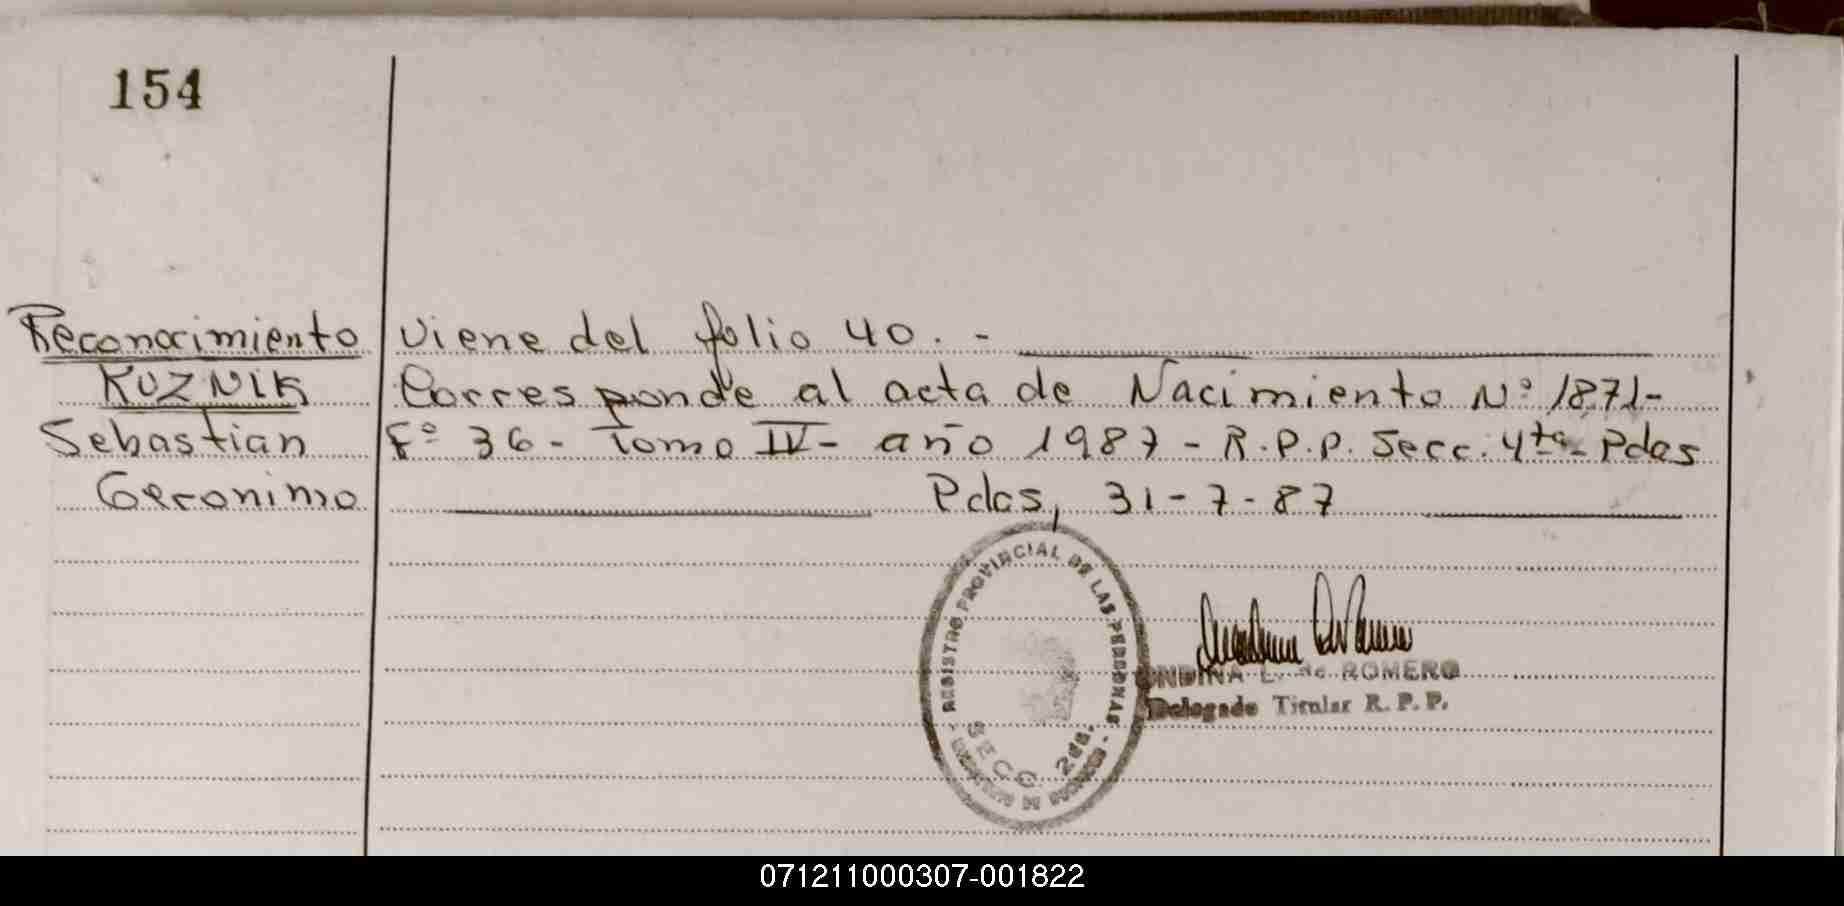 154
Reconocimiento
KUZNIK
Sebastian
Geronimo
viene del folio 40.-
Corresponde al acta de Nacimiento Nº 1871-
Fº 36- Tomo IV- año 1987- R.P.P. Secc. 4ta- Pdas
Pdas, 31-7-87
REGISTRO PROVINCIAL DE LAS PERSONAS
SECC. 2da.
ONDINA L. de ROMERO
Delegado Titular R. P. P.
071211000307-001822